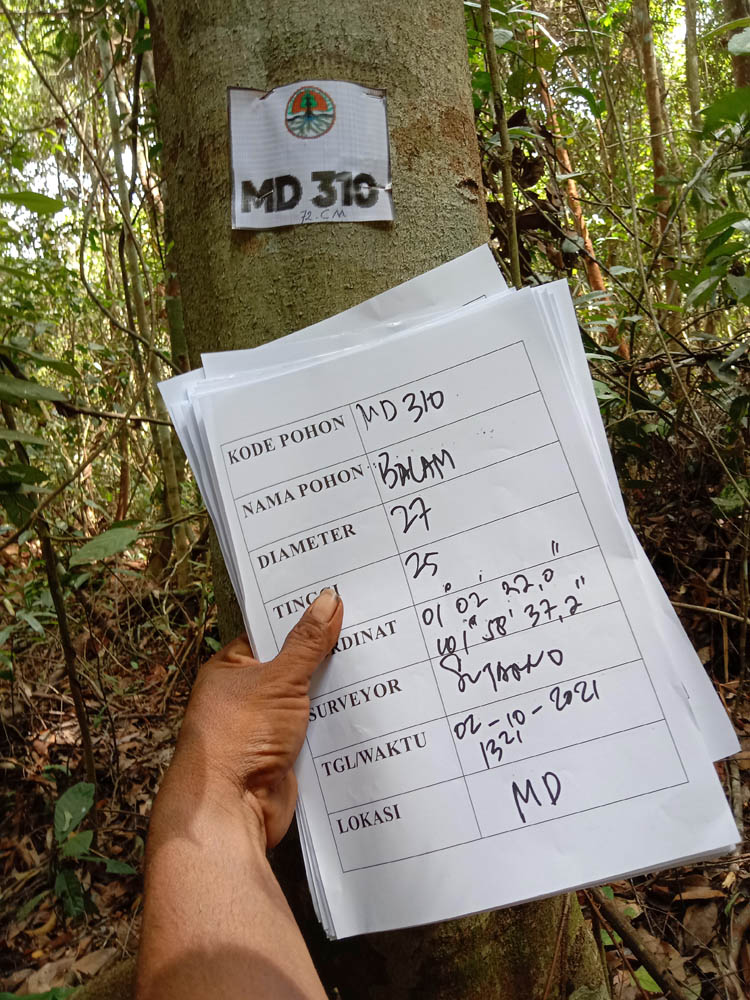 MD 310
72.CM
KODE POHON MD 310
NAMA POHON BALAM
DIAMETER 27
TINGGI 25
RDINAT 01° 02' 22,0"
101° 58' 37,2"
SURVEYOR SUTARNO
TGL/WAKTU 02-10-2021
1321
LOKASI MD